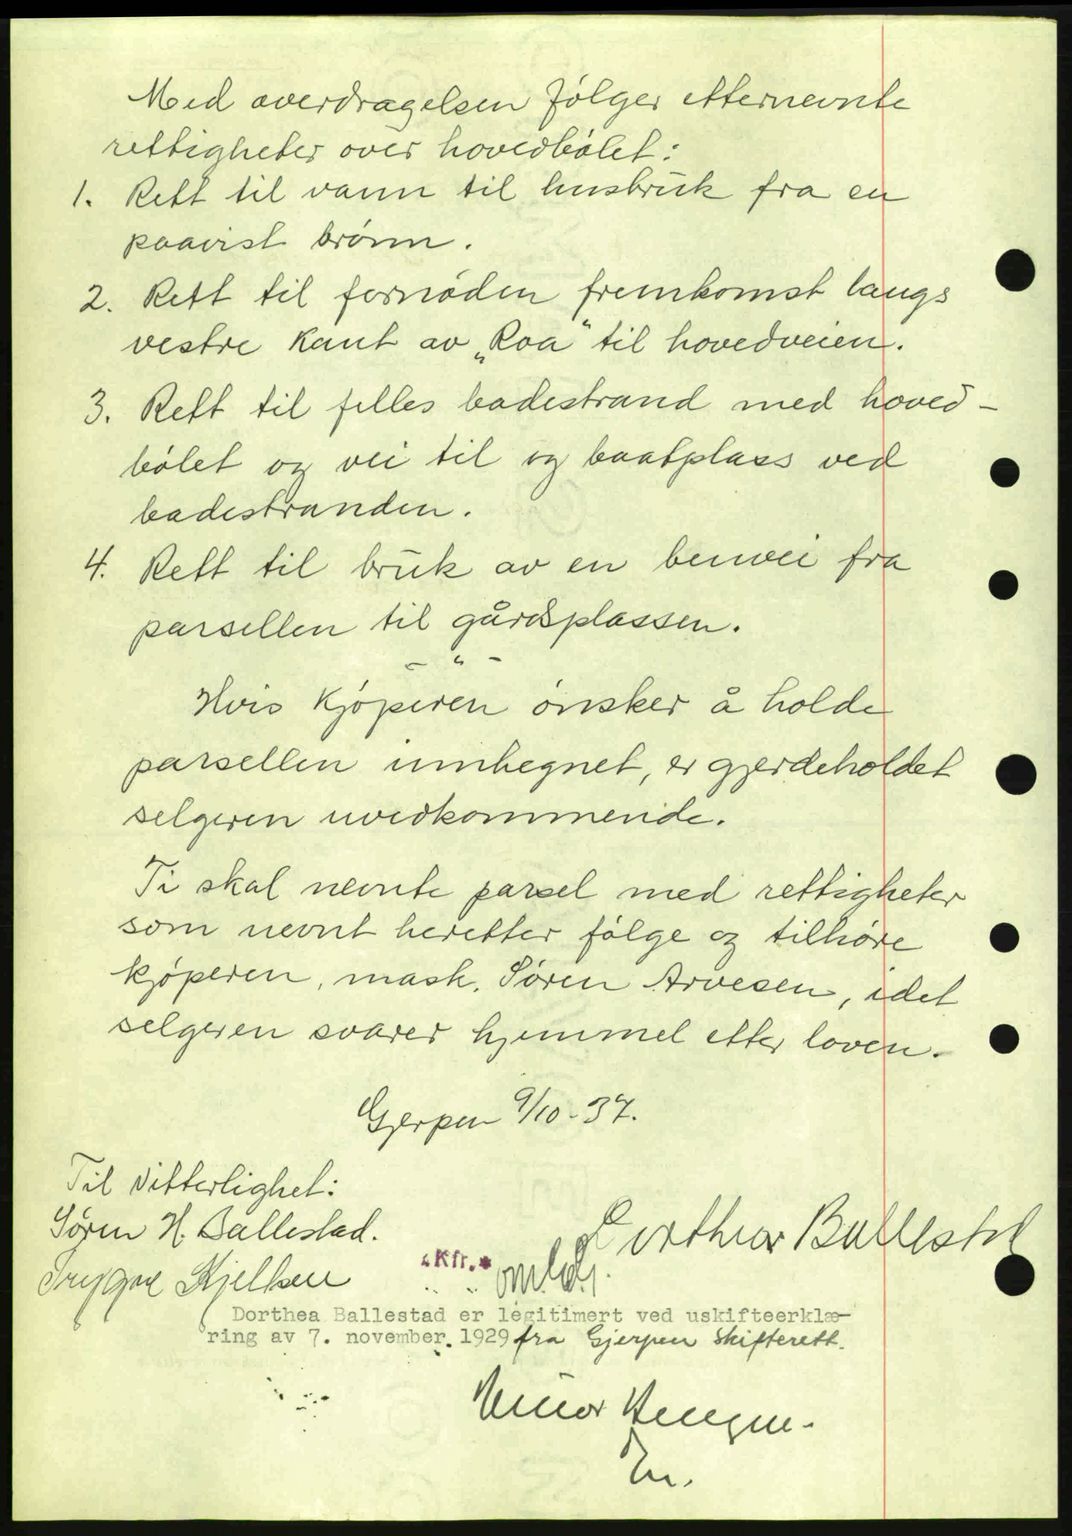 Med overdragelsen følger etternevnte
rettigheter over hovedbølet:
1. Rett til vann til husbruk fra en
paavist brønn.
2. Rett til fornøden fremkomst langs
vestre kant av „Roa“ til hovedveien.
3. Rett til felles badestrand med hoved-
bølet og vei til og baatplass ved
badestranden.
4. Rett til bruk av en benvei fra
parsellen til gårdsplassen.
- " -
Hvis kjøperen ønsker å holde
parsellen innhegnet, er gjerdeholdet
selgeren uvedkommende.
Ti skal nevnte parsel med rettigheter
som nevnt heretter følge og tilhøre
kjøperen, mask. Søren Arvesen, idet
selgeren svarer hjemmel etter loven.
Gjerpen 9/10-37.
Til Vitterlighet:
Søren H. Ballestad.
Dorthea Ballestad
Trygve Kjelsen
Kfr.
Dorthea Ballestad er legitimert ved uskifteerklæ-
ring av 7. november 1929 fra Gjerpen Skifterett.